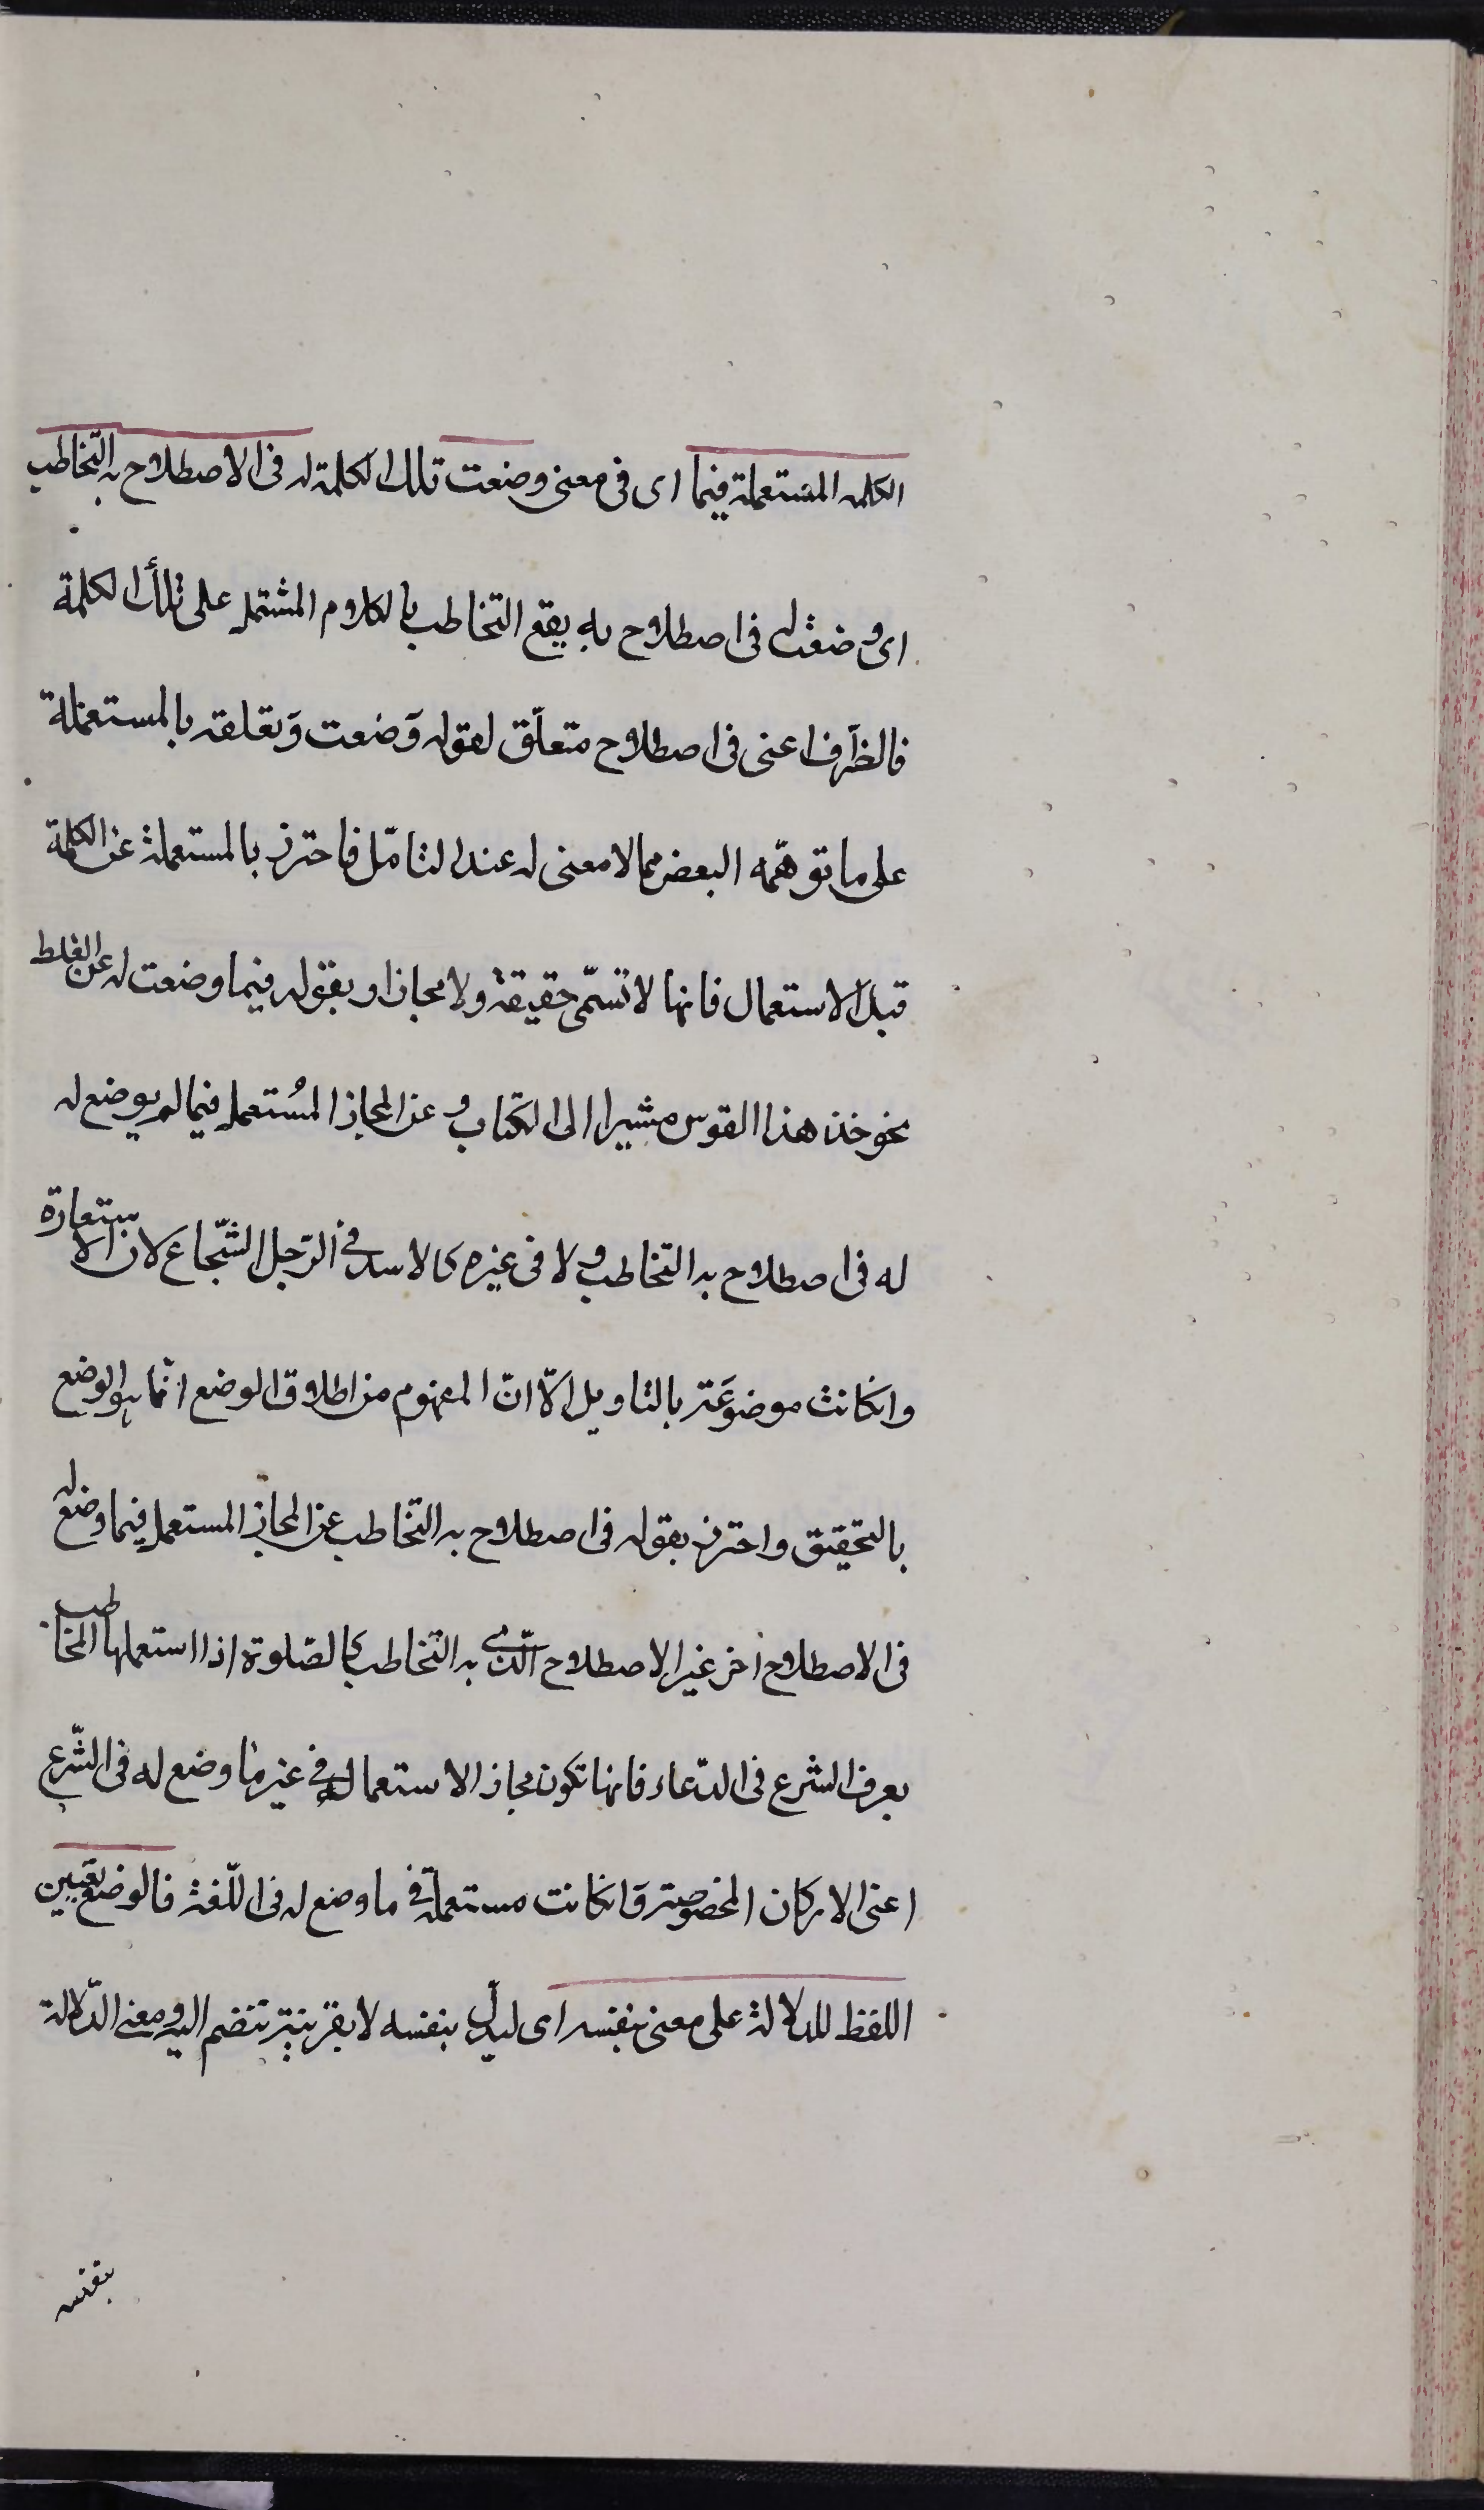 الكلمه المستعملة فيما اى فى معنى وضعت تلك الكلمة له فى الاصطلاح به التخاطب
اى وضعت له فى اصطلاح به يقع التخاطب بالكلام المشتمل على تلك الكلمة
فالظرف اعنى فى اصطلاح متعلّق لقوله وَضعت وَتعلقه بالمستعملة
على ما توهّمه البعض مما لا معنى له عند التامّل فاحترز بالمستعملة عن الكلمة
قبل الاستعمال فانها لا تسمّى حقيقة ولا مجازا وبقوله فيما وضعت له عن الغلط
نحو خذ هذا القوس مشيرا الى الكتاب وعن المجاز المُستعمل فيما لم يوضع له
له فى اصطلاح به التخاطب ولا فى غيره كالاسد فى الرّجل الشّجاع لان الاستعارة
وانكانت موضوعَة بالتاويل الّا انّ المفهوم من اطلاق الوضع انّما هو الوضع
بالتحقيق واحترز بقوله فى اصطلاح به التخاطب عن المجاز المستعمل فيما وضع له
فى الاصطلاح اخر غير الاصطلاح الّذى به التخاطب كالصّلوة اذا استعملها المخاطب
بعرف الشرع فى الدّعاء فانها تكون مجاز الاستعماله فى غير ما وضع له فى الشّرع
اعنى الاركان المخصوصة وَانكانت مستعملة فى ما وضع له فى اللّغة فالوضع تعيين
اللفظ للدلالة على معنى بنفسه اى ليدلّ بنفسه لا بقرينة تنضم اليه ومعنى الدّلالة
بنفسه